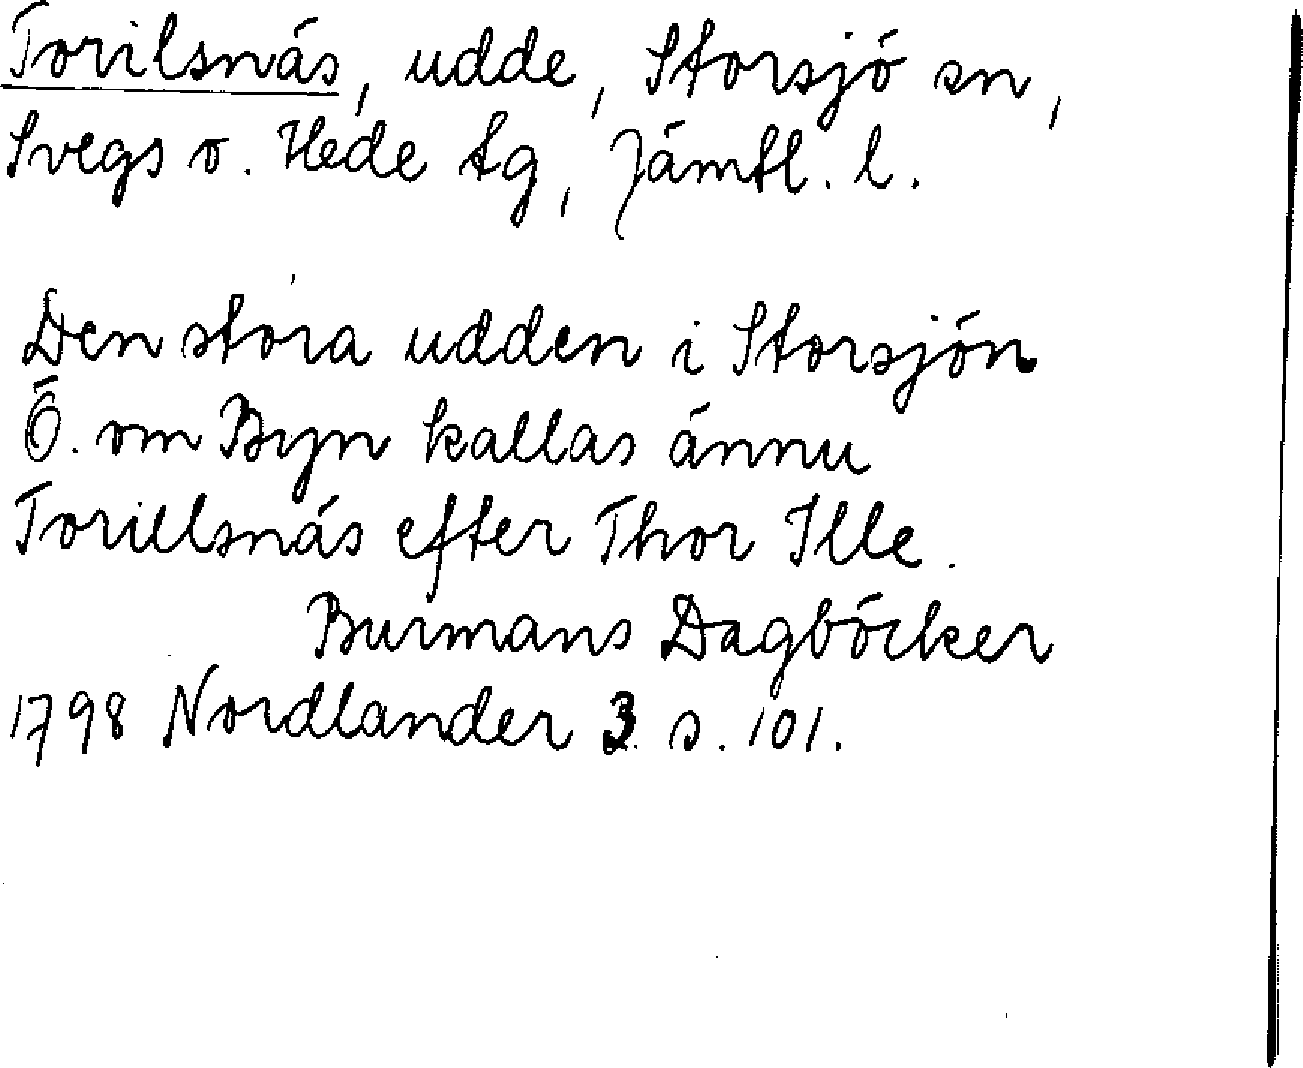 Torilsnäs, udde, Storsjö sn,
Svegs o. Hede tg, Jämtl. l.
Den stora udden i Storsjön
Ö. om Byn kallas ännu
Torillsnäs efter Thor Ille.
Burmans Dagböcker
1798 Nordlander 3. s. 101.